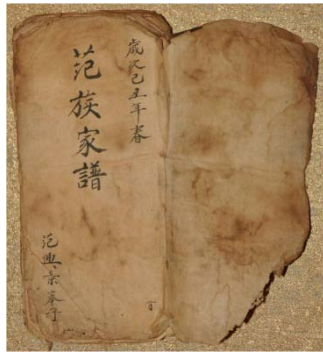 歲次己丑年春
范族家譜
范興宗奉存